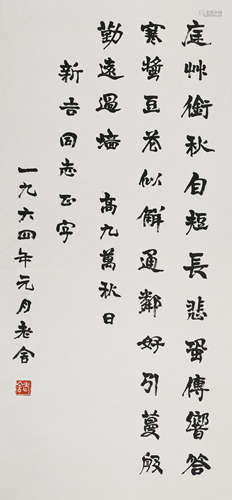 庭艸銜秋自短長悲蛩傳響答
寒螿豆花似解通鄰好引蔓殷
勤遠過墻 高九萬秋日
新吉同志正字
一九六四年元月老舍